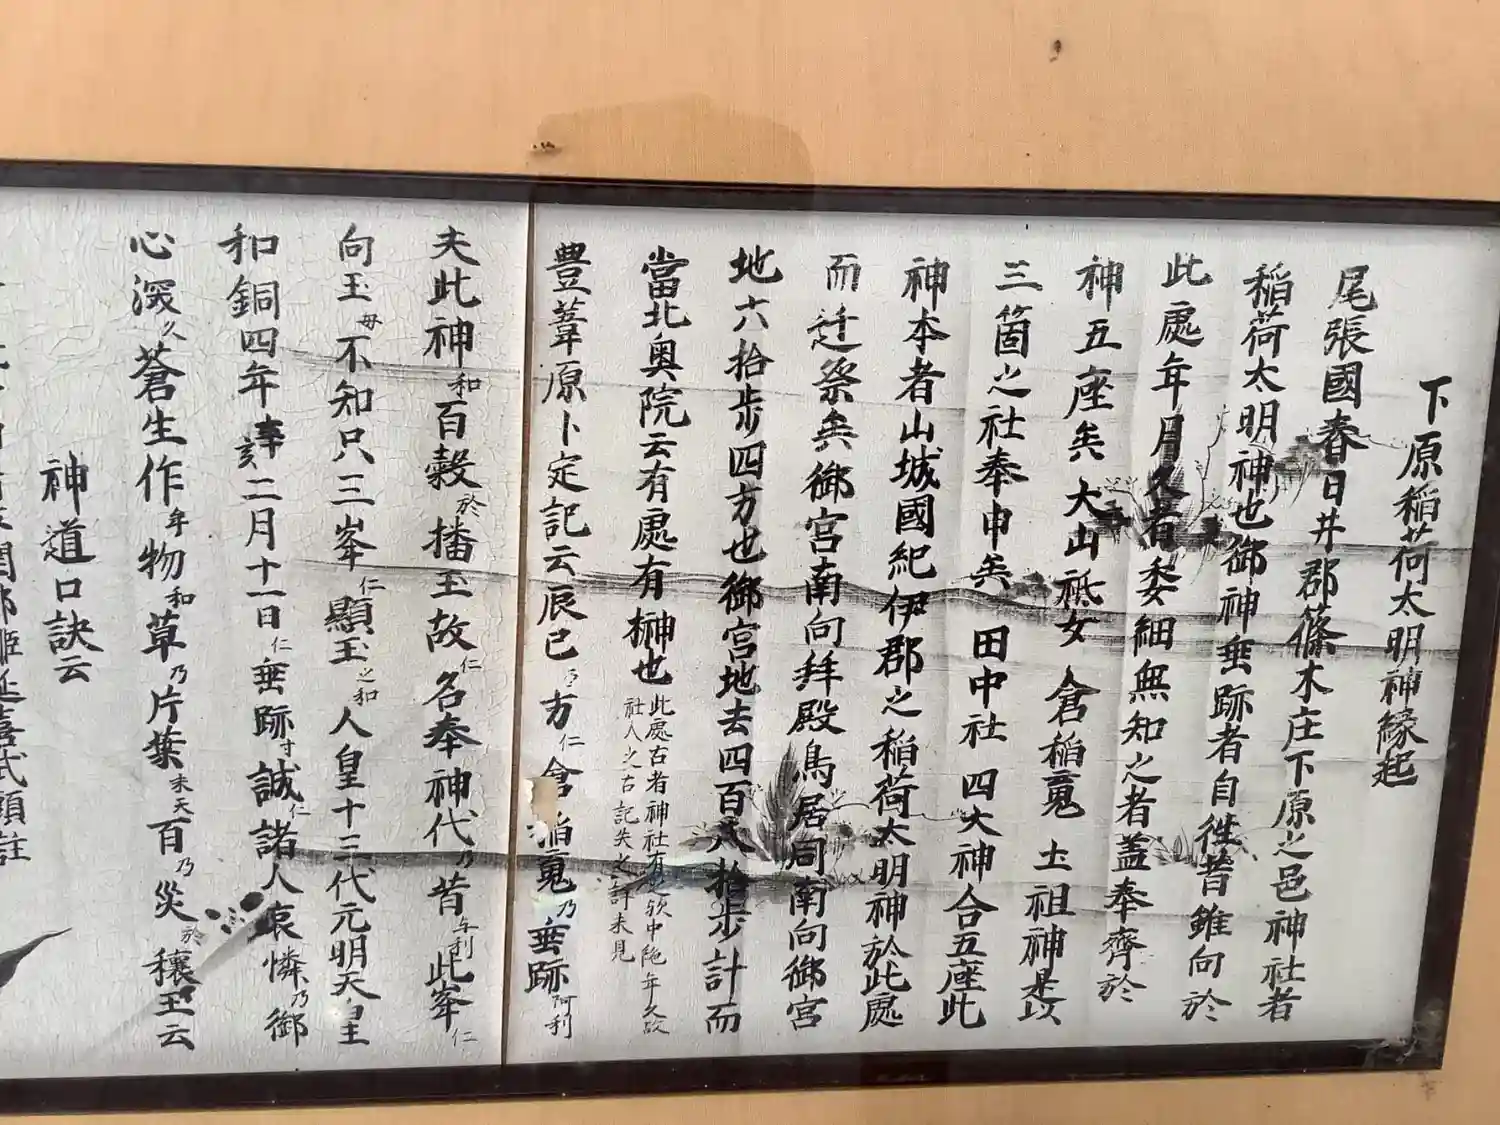 下原稲荷太明神縁起
尾張國春日井郡篠木庄下原之邑神社者
稲荷太明神也御神垂跡者自徃昔雖向於
此處年月久者委細無知之者蓋奉齊於
神五座矣大山祗女倉稲䰟土祖神是以
三箇之社奉申矣田中社四大神合五座此
神本者山城國紀伊郡之稲荷太明神於此處
而迁祭矣御宮南向拜殿鳥居同南向御宮
地六拾歩四方也御宮地去四百 拾歩計而
當北奥院云有處有榊也
此處古者神社有之欤中絶年久故
社人之古記失之詳未見
豊葦原卜定記云辰巳 方仁倉稲䰟乃垂跡阿利
夫此神和百穀於播玉故仁名奉神代乃昔与利此峯仁
向玉毋不知只三峯仁顯玉之和人皇十三代元明天皇
和銅四年辛亥二月十一日仁垂跡寸誠仁諸人哀憐乃御
心深久蒼生作牟物和草乃片葉未天百乃災於穰玉云
神道口訣云
延喜式頭註